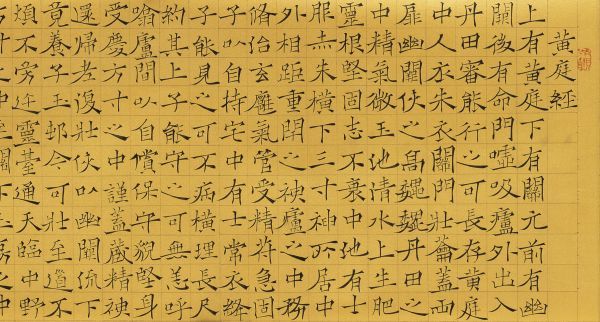 黃庭經
上有黃庭下有關元前有幽
闕後有命門噓吸廬外出入
丹田審能行之可長存黃庭
中人衣朱衣關門壯籥蓋兩
扉幽闕俠之高巍巍丹田之
中精氣微玉池清水上生肥
靈根堅固志不衰中池有士
服赤朱橫下三寸神所居中
外相距重閉之神廬之中務
脩治玄廱氣管受精符急固
子以自持宅中有士常衣絳
子能見之可不病橫理長尺
約其上子能守之可無恙呼
噏廬間以自償保守貌堅身
受慶方寸之中謹蓋藏精神
還歸老復壯俠以幽闕流下
竟養子玉邨令可壯至道不
煩不旁迕靈臺通天臨中野